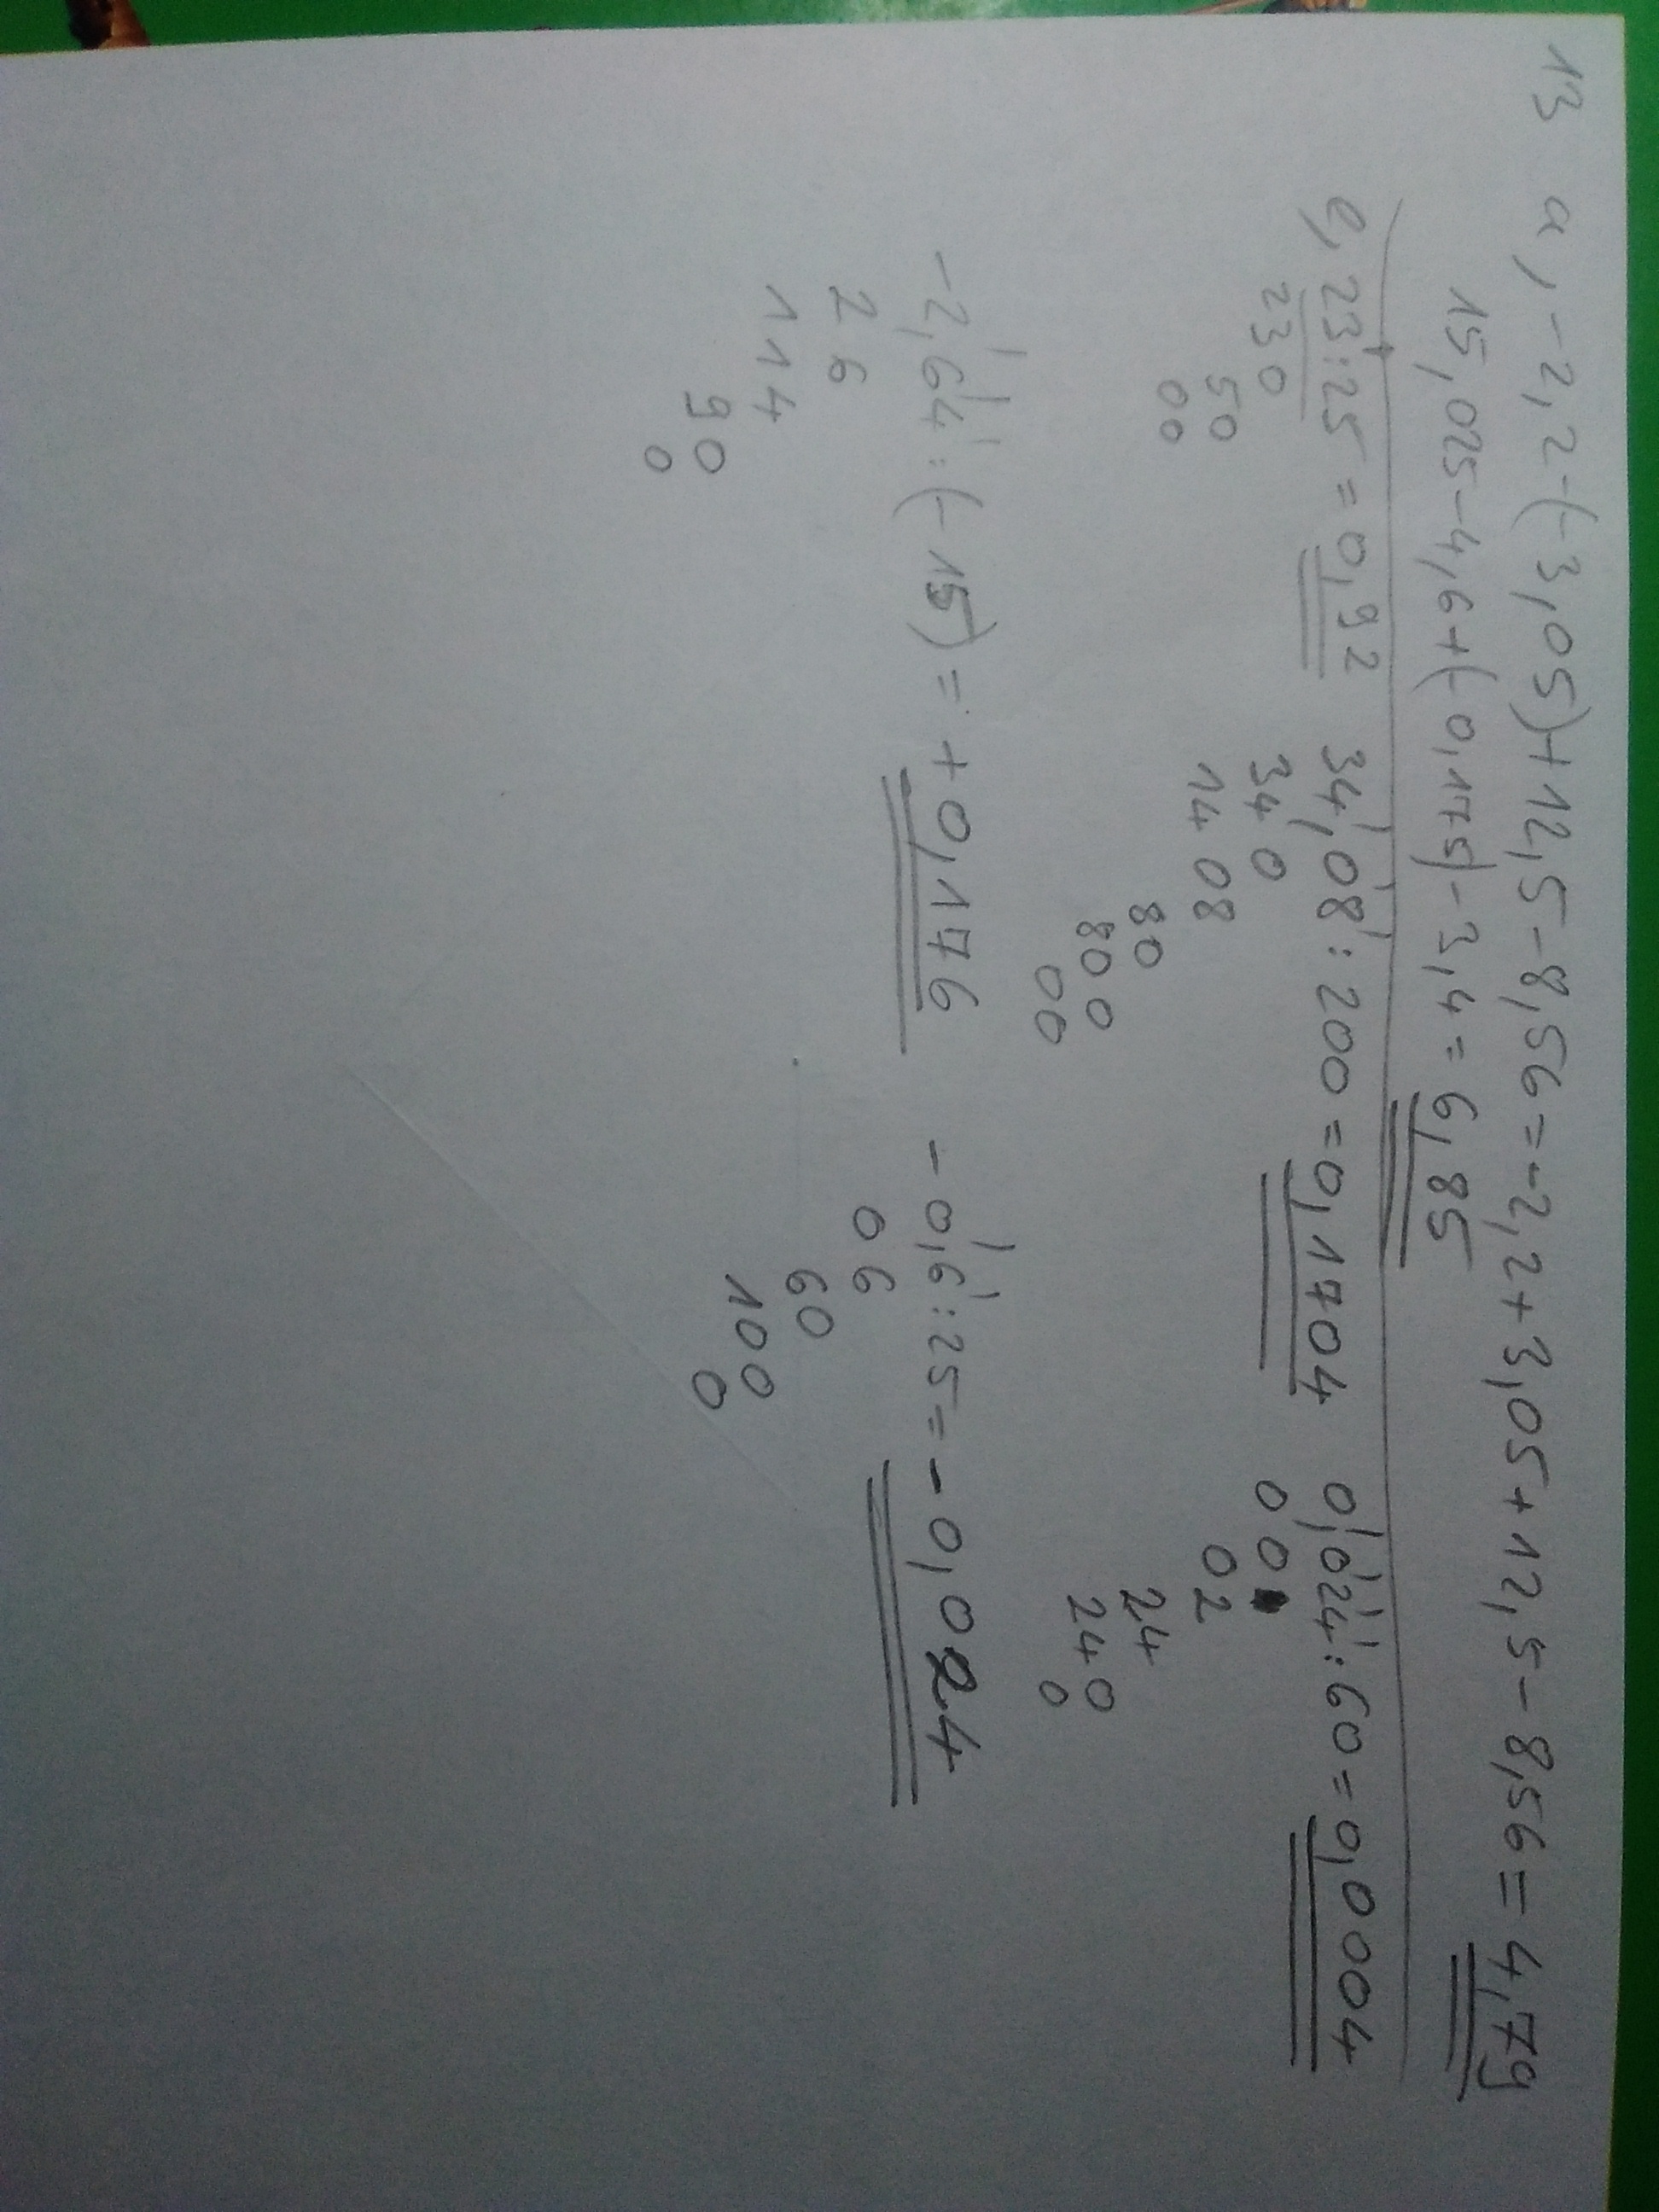 13 a, -2,2-(-3,05)+12,5-8,56=-2,2+3,05+12,5-8,56=4,79
15,025-4,6+(-0,175)-3,4=6,85
e, 23:25=0,92 34,08:200=0,1704 0,024:60=0,0004
230 340 00
50 1408 02
00 80 24
800 240
00 0
-2,64:(-15)=+0,176 -0,6:25=-0,024
26 06
114 60
90 100
0 0